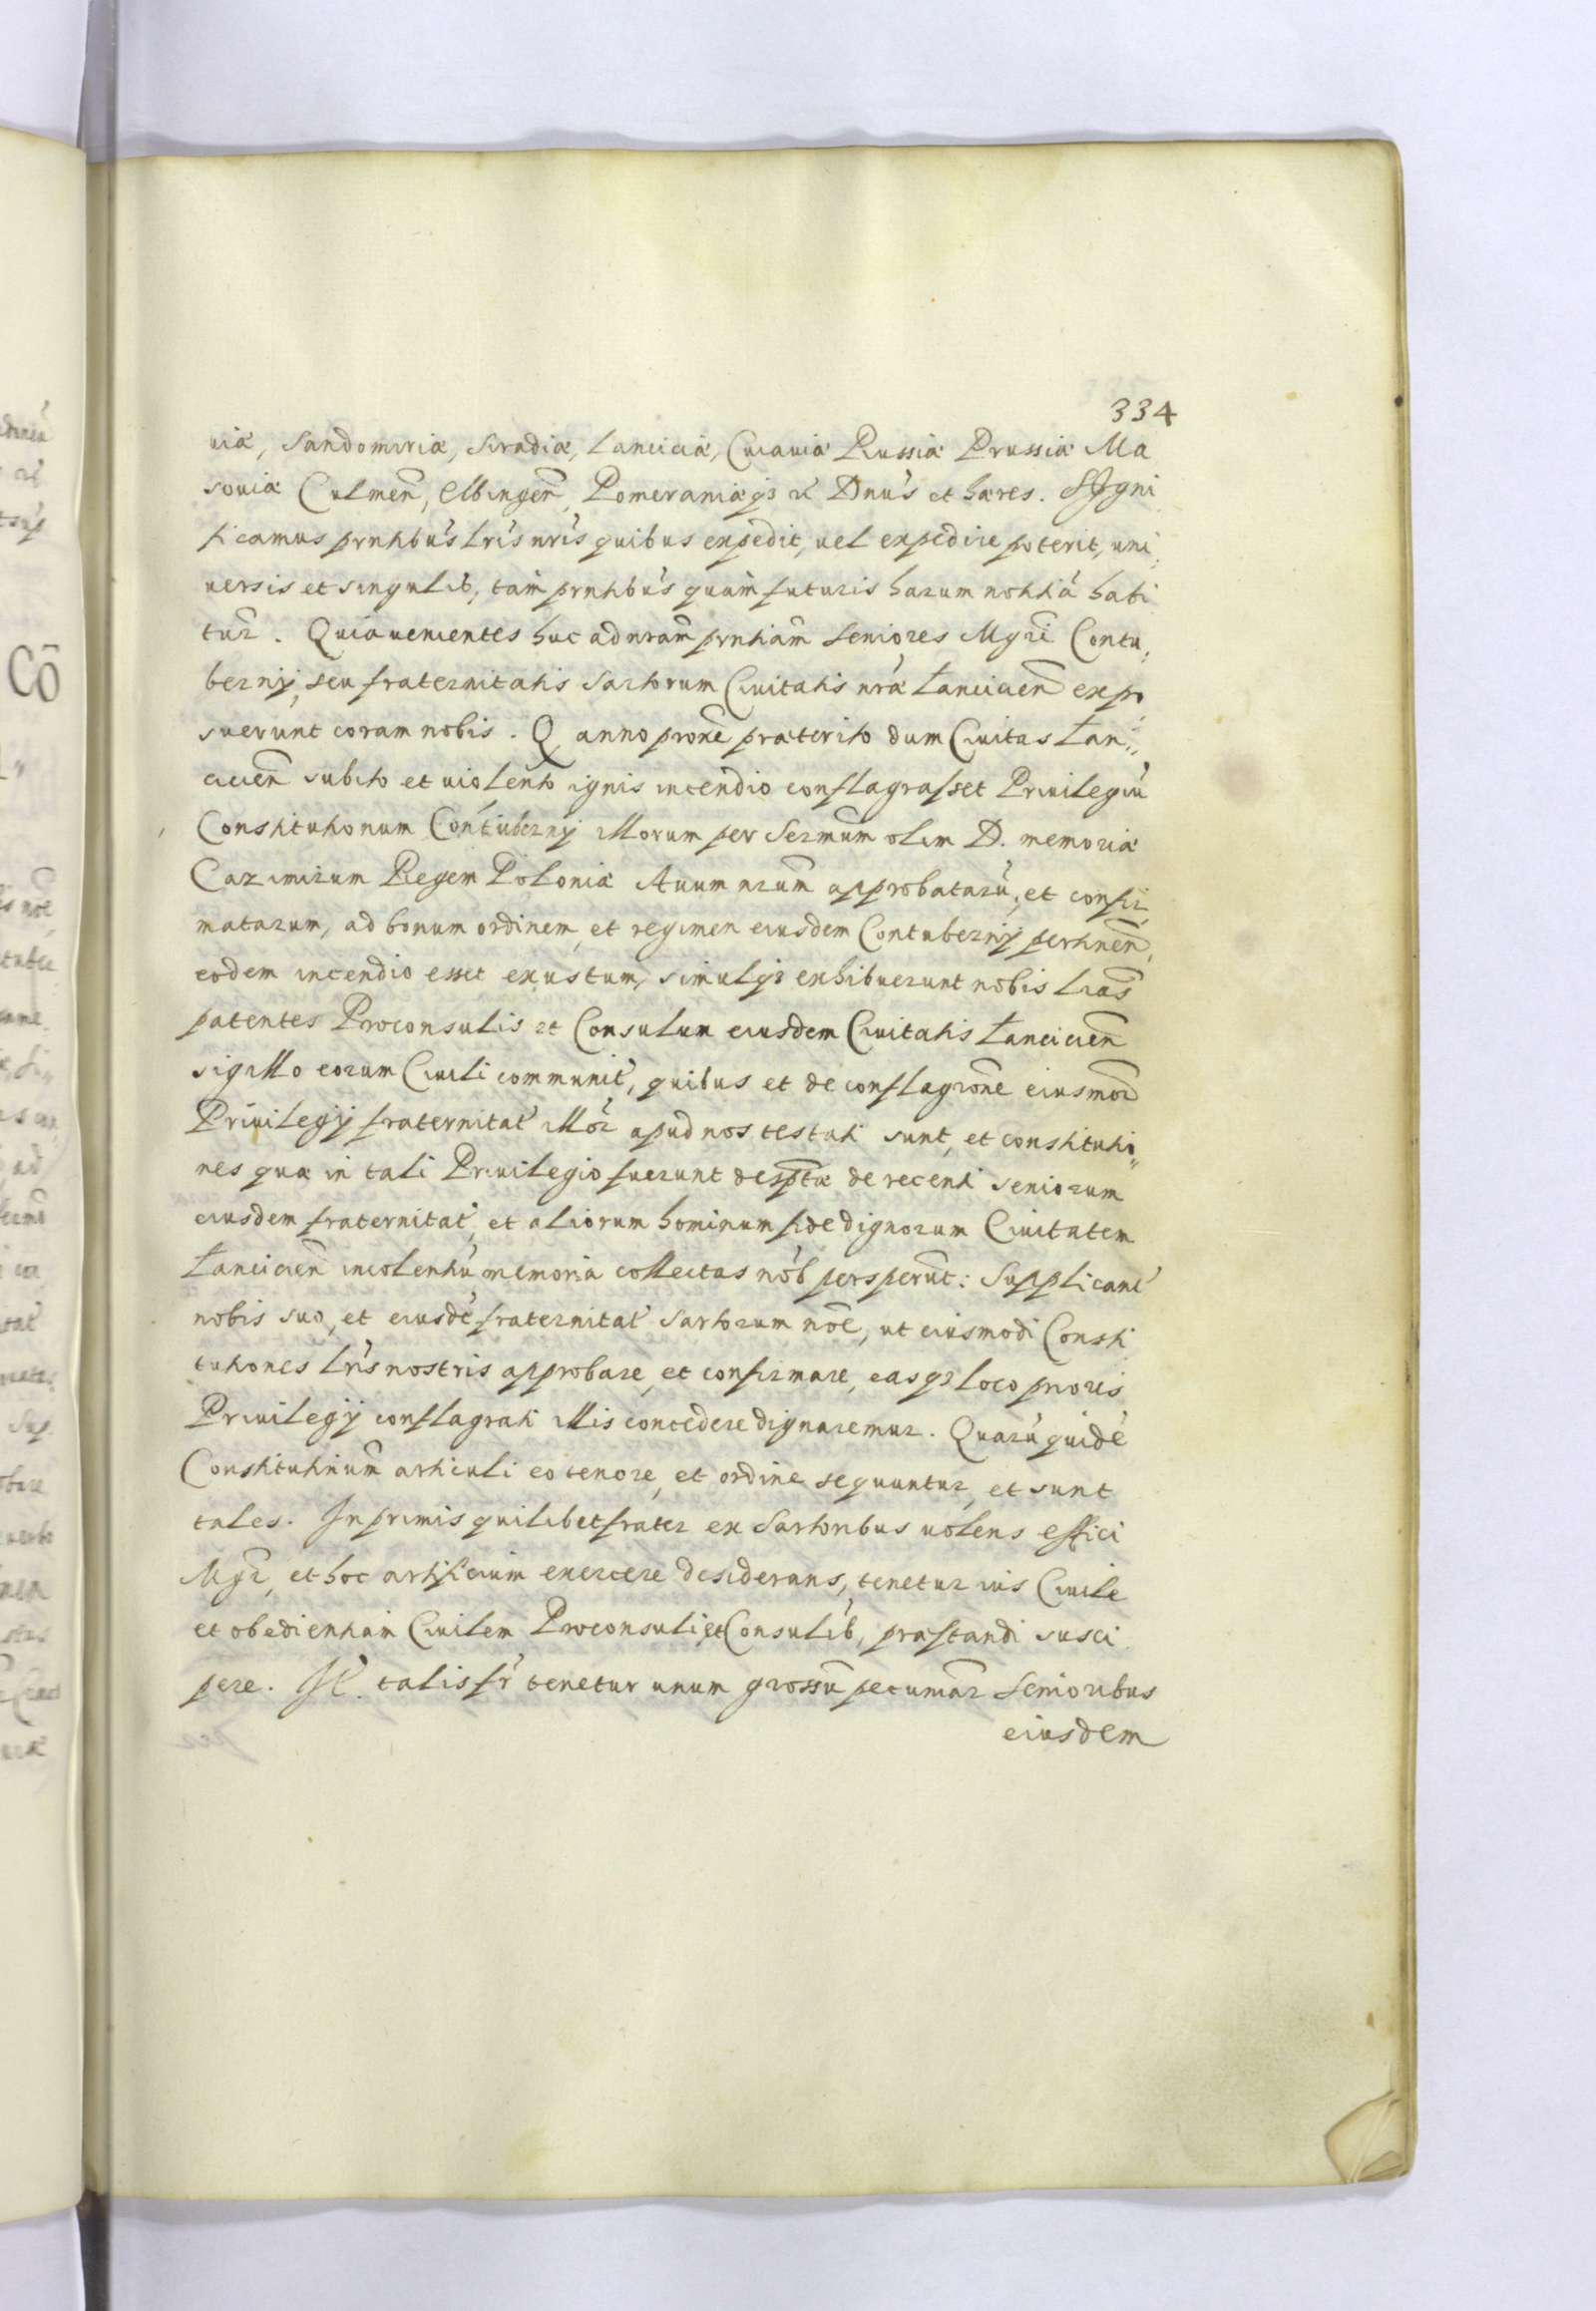 334
uiæ, Sandomiriæ, Siradiæ, Lanciciæ, Cuiauiæ Russiæ Prussiæ Ma
souiæ Culmeñ, Elbingeñ, Pomeraniæq3 et Dnũs et hæres. SIgni
ficamus prntibũs lrĩs nrĩs quibus expedit, uel expedire poterit, uni
uersis et singulib, tam prntibũs quam futuris harum notitiã habi
tur̃. Quia uenientes huc ad nram̃ prntiam̃ Seniores Mgrĩ Contu
bernÿ, seu fraternitatis Sartorum Ciuitatis nræ̃ Lancicieñ expo
suerunt coram nobis. Q anno proxẽ præterito dum Ciuitas Lan
cicieñ subito et uiolento ignis incendio conflagrasset Priuilegiũ
Constitutionum Contubernÿ illorum per Sermũm olim D. memoriæ
Cazimirum Regem Poloniæ Auum nrũm approbatarũ, et confir
matarum, ad bonum ordinem, et regimen eiusdem Contubernÿ pertineñ,
eodem incendio esset exustum, simulq3 exhibuerunt nobis lrãs
patentes Proconsulis et Consulum eiusdem Ciuitatis Lancicieñ
sigillo eorum Ciuili communit̃, quibus et de conflagrõne eiusmod̃
Priuilegÿ fraternitat̃ illor̃ apud nos testati sunt, et constitutio
nes quæ in tali Priuilegio fuerunt desptæ̃ de recenti Seniorum
eiusdem fraternitat̃, et aliorum hominum fide dignorum Ciuitatem
Lancicieñ incolentiũ memoria collectas nõb persperũt: Supplicant̃
nobis suo, et eiusdẽ fraternitat̃ Sartorum nõe, ut eiusmodi Consti
tutiones lrĩs nostris approbare, et confirmare, easq3 loco prioris
Priuilegÿ conflagrati illis concedere dignaremur. Quarũ quidẽ
Constitutinum̃ articuli eo tenore, et ordine sequuntur, et sunt
tales. Inprimis quilibet frater ex Sartoribus uolens effici
Mgr̃, et hoc artificium exercere desiderans, tenetur ius Ciuile
et obedientiam Ciuilem Proconsuli, et Consulib̃, præstandi susci
pere. It̃. talis fr̃ tenetur unum grossũ pecuniar̃ Senioribus
eiusdem